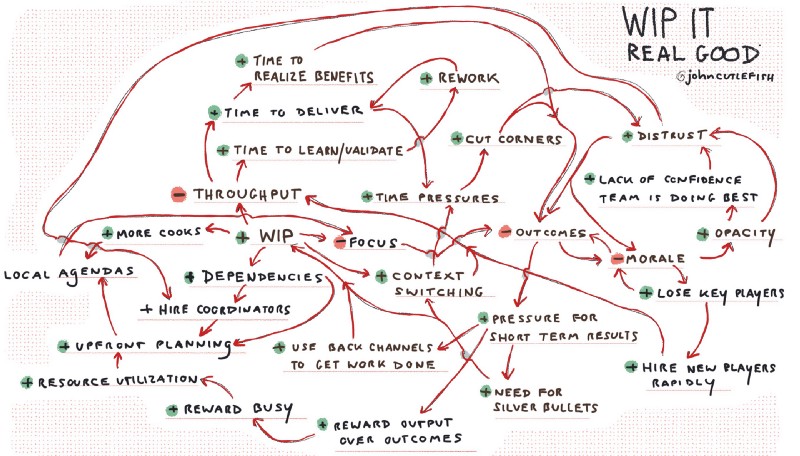 WIP IT
REAL GOOD
@johncutlefish
+ TIME TO
REALIZE BENEFITS
+ REWORK
+ TIME TO DELIVER
+ CUT CORNERS
+ DISTRUST
+ TIME TO LEARN/VALIDATE
+ LACK OF CONFIDENCE
TEAM IS DOING BEST
- THROUGHPUT
+ TIME PRESSURES
+ MORE COOKS
+ WIP
- FOCUS
- OUTCOMES
+ OPACITY
- MORALE
LOCAL AGENDAS
+ DEPENDENCIES
+ CONTEXT
SWITCHING
+ LOSE KEY PLAYERS
+ HIRE COORDINATORS
+ PRESSURE FOR
SHORT TERM RESULTS
+ UPFRONT PLANNING
+ USE BACK CHANNELS
TO GET WORK DONE
+ HIRE NEW PLAYERS
RAPIDLY
+ RESOURCE UTILIZATION
+ NEED FOR
SILVER BULLETS
+ REWARD BUSY
+ REWARD OUTPUT
OVER OUTCOMES